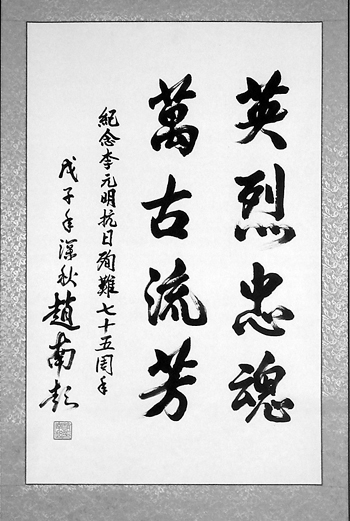 英烈忠魂
萬古流芳
紀念李元明抗日殉難七十五周年
戊子年深秋趙南彭